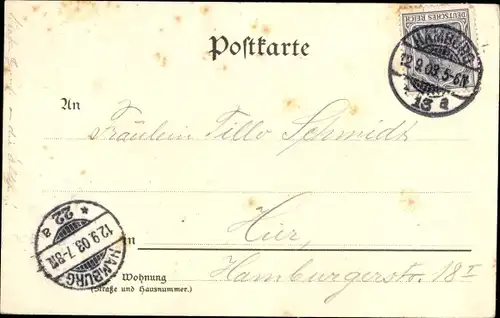 Postkarte
DEUTSCHES REICH
HAMBURG
12.9.03. 5-6N
* 13 a
An
Fräulein Tillo Schmidt
Hier,
in
Hamburgerstr. 18 I
HAMBURG
12.9.03. 7-8N
* 22 a
Wohnung
(Straße und Hausnummer.)